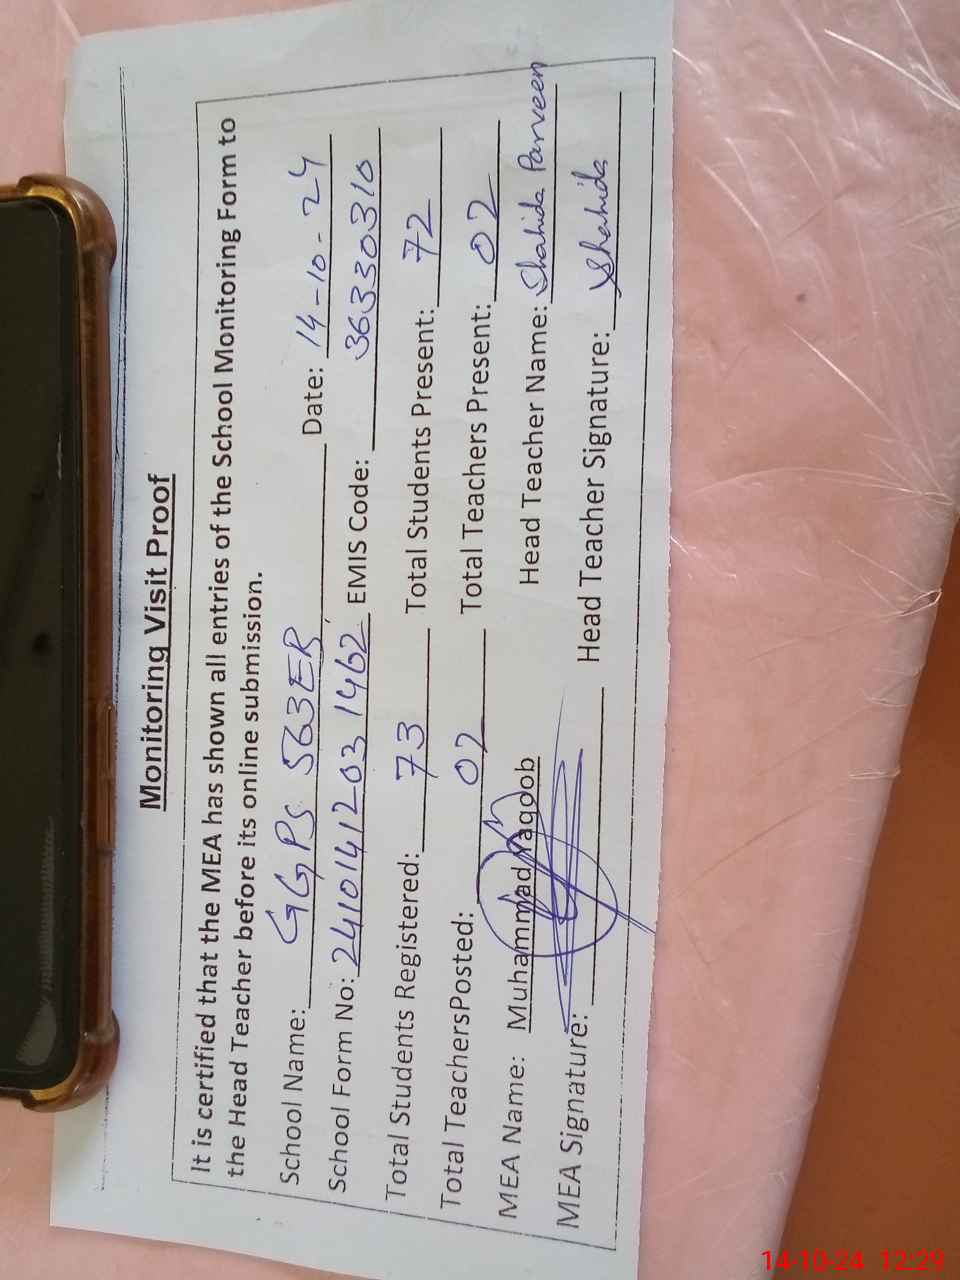 Monitoring Visit Proof
It is certified that the MEA has shown all entries of the School Monitoring Form to
the Head Teacher before its online submission.
School Name: GGPS 563EB Date: 14-10-24
School Form No: 24101412031462 EMIS Code: 36330310
Total Students Registered: 73 Total Students Present: 72
Total TeachersPosted: 02 Total Teachers Present: 02
MEA Name: Muhammad Yaqoob Head Teacher Name: Shahida Parveen
MEA Signature: Head Teacher Signature: Shahida
14-10-24 12:29